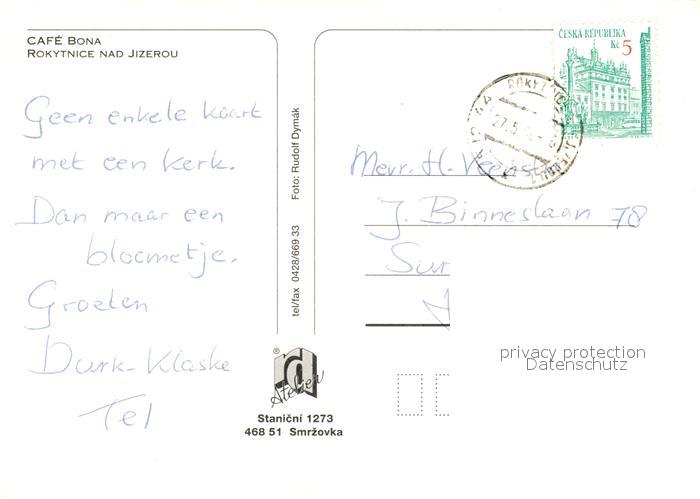 CAFÉ BONA
ROKYTNICE NAD JIZEROU
Geen enkele kaart
met een kerk.
Dan maar een
bloemetje.
Groeten
Durk-Klaske
Tel
tel/fax 0428/669 33 Foto: Rudolf Dymák
® rd
Atelier
Staniční 1273
468 51 Smržovka
ČESKÁ REPUBLIKA
Kč 5
ROKYTNICE
27.5
Mevr. H. Veenstra
J. Binneslaan 78
Sur
privacy protection
Datenschutz